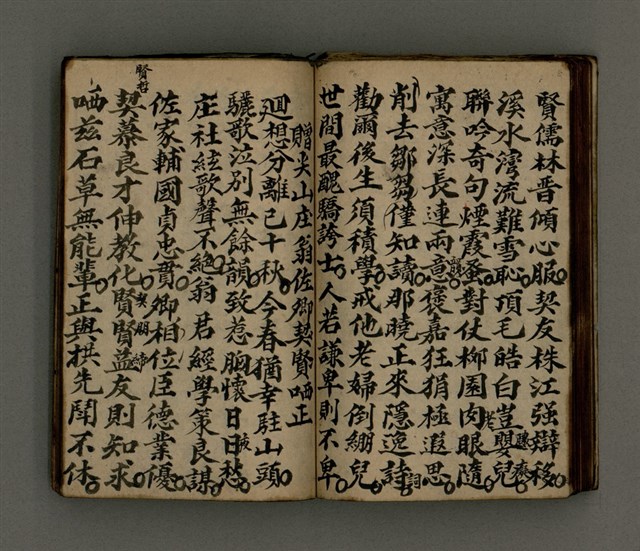 賢儒林晋傾心服契友株江強辯移
溪水灣流難雪恥頂毛皓白豈嬰兒
聯吟奇句煙霞蚤對仗柳園肉眼隨
寓意深長連兩意褒嘉狂狷極遐思
削去鄒芻僅知讀那曉正來隱逸詩詞
勸爾後生須積學戒他老婦倒綳兒
世間最醜驕誇士人若謙卑則不卑
贈尖山庄翁佐卿契賢哂正
廻想分離已十秋今春猶幸駐山頭
驪歌泣別無餘韻致惹胸懷日日愁
庄社絃歌聲不絕翁君經學策良謀
佐家輔國貞忠貫卿相位臣德業優
契慕良才伸教化賢賢益友則知求
賢哲
哂兹石草無能輩正與拱先鬧不休